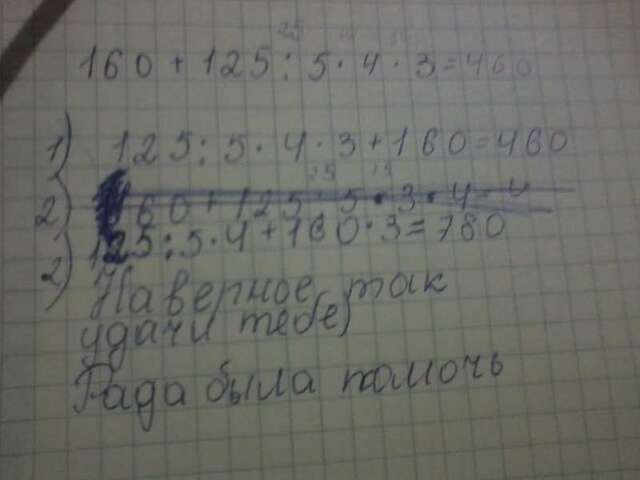 160 + 125 : 5 · 4 · 3 = 460
1) 125 : 5 · 4 · 3 + 160 = 460
2) 160 + 125 : 5 · 3 · 4 =
2) 125 : 5 · 4 + 160 · 3 = 780
Наверное так
удачи тебе)
Рада была помочь